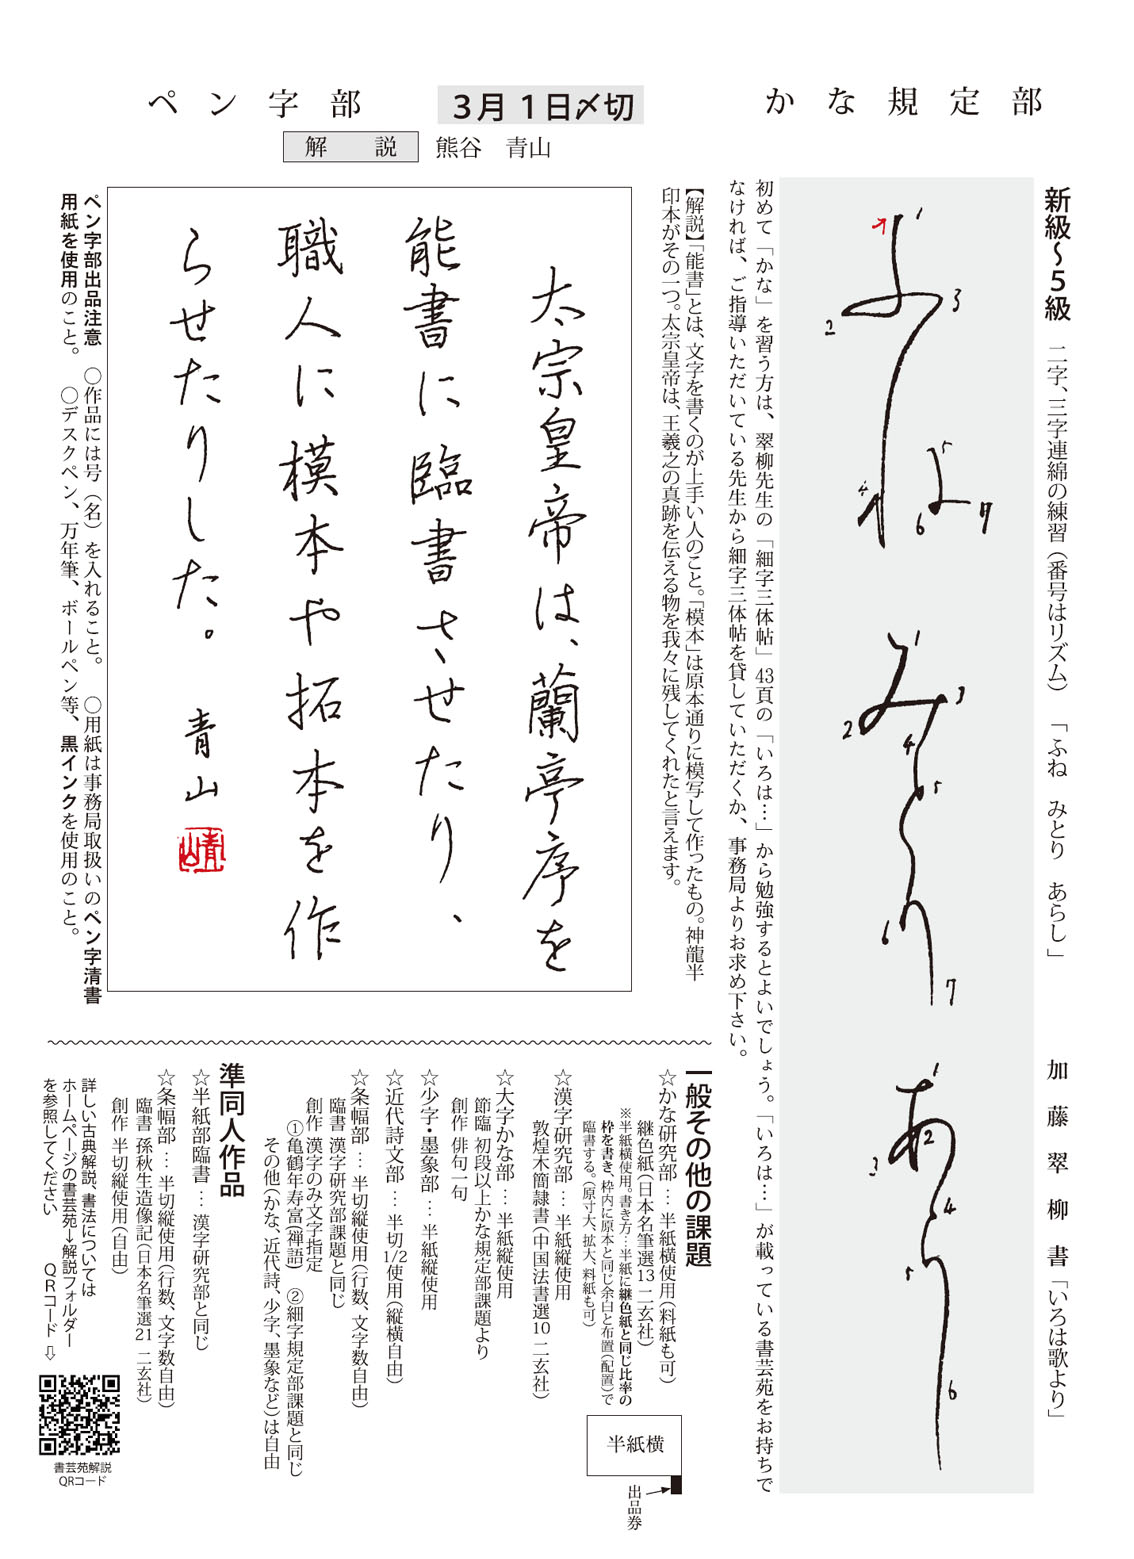 かな規定部
３月１日〆切
ペン字部
解　説　熊谷　青山
新級〜５級　二字、三字連綿の練習（番号はリズム）　「ふね　みとり　あらし」　加藤翠柳書「いろは歌より」
ふね　みとり　あらし
1
2
3
4
5
6
7
1
2
3
4
5
6
7
1
2
3
4
5
6
初めて「かな」を習う方は、翠柳先生の「細字三体帖」43頁の「いろは…」から勉強するとよいでしょう。「いろは…」が載っている書芸苑をお持ちで
なければ、ご指導いただいている先生から細字三体帖を貸していただくか、事務局よりお求め下さい。
【解説】「能書」とは、文字を書くのが上手い人のこと。「模本」は原本通りに模写して作ったもの。神龍半
印本がその一つ。太宗皇帝は、王羲之の真跡を伝える物を我々に残してくれたと言えます。
太宗皇帝は、蘭亭序を
能書に臨書させたり、
職人に模本や拓本を作
らせたりした。　青山
青山
ペン字部出品注意　○作品には号（名）を入れること。　○用紙は事務局取扱いのペン字清書
用紙を使用のこと。　○デスクペン、万年筆、ボールペン等、黒インクを使用のこと。
一般その他の課題
☆かな研究部…半紙横使用（料紙も可）
継色紙（日本名筆選13 二玄社）
※半紙横使用。書き方…半紙に継色紙と同じ比率の
枠を書き、枠内に原本と同じ余白と布置（配置）で
臨書する。（原寸大、拡大、料紙も可）
半紙横
出品券
☆漢字研究部…半紙縦使用
敦煌木簡隷書（中国法書選10 二玄社）
☆大字かな部…半紙縦使用
節臨 初段以上かな規定部課題より
創作 俳句一句
☆少字・墨象部…半紙縦使用
☆近代詩文部…半切1/2使用（縦横自由）
☆条幅部…半切縦使用（行数、文字数自由）
臨書 漢字研究部課題と同じ
創作 漢字のみ文字指定
①亀鶴年寿富（禅語）　②細字規定部課題と同じ
その他（かな、近代詩、少字、墨象など）は自由
準同人作品
☆半紙部臨書…漢字研究部と同じ
☆条幅部…半切縦使用（行数、文字数自由）
臨書 孫秋生造像記（日本名筆選21 二玄社）
創作 半切縦使用（自由）
詳しい古典解説、書法については
ホームページの書芸苑→解説フォルダー
を参照してください　ＱＲコード⇩
書芸苑解説
QRコード